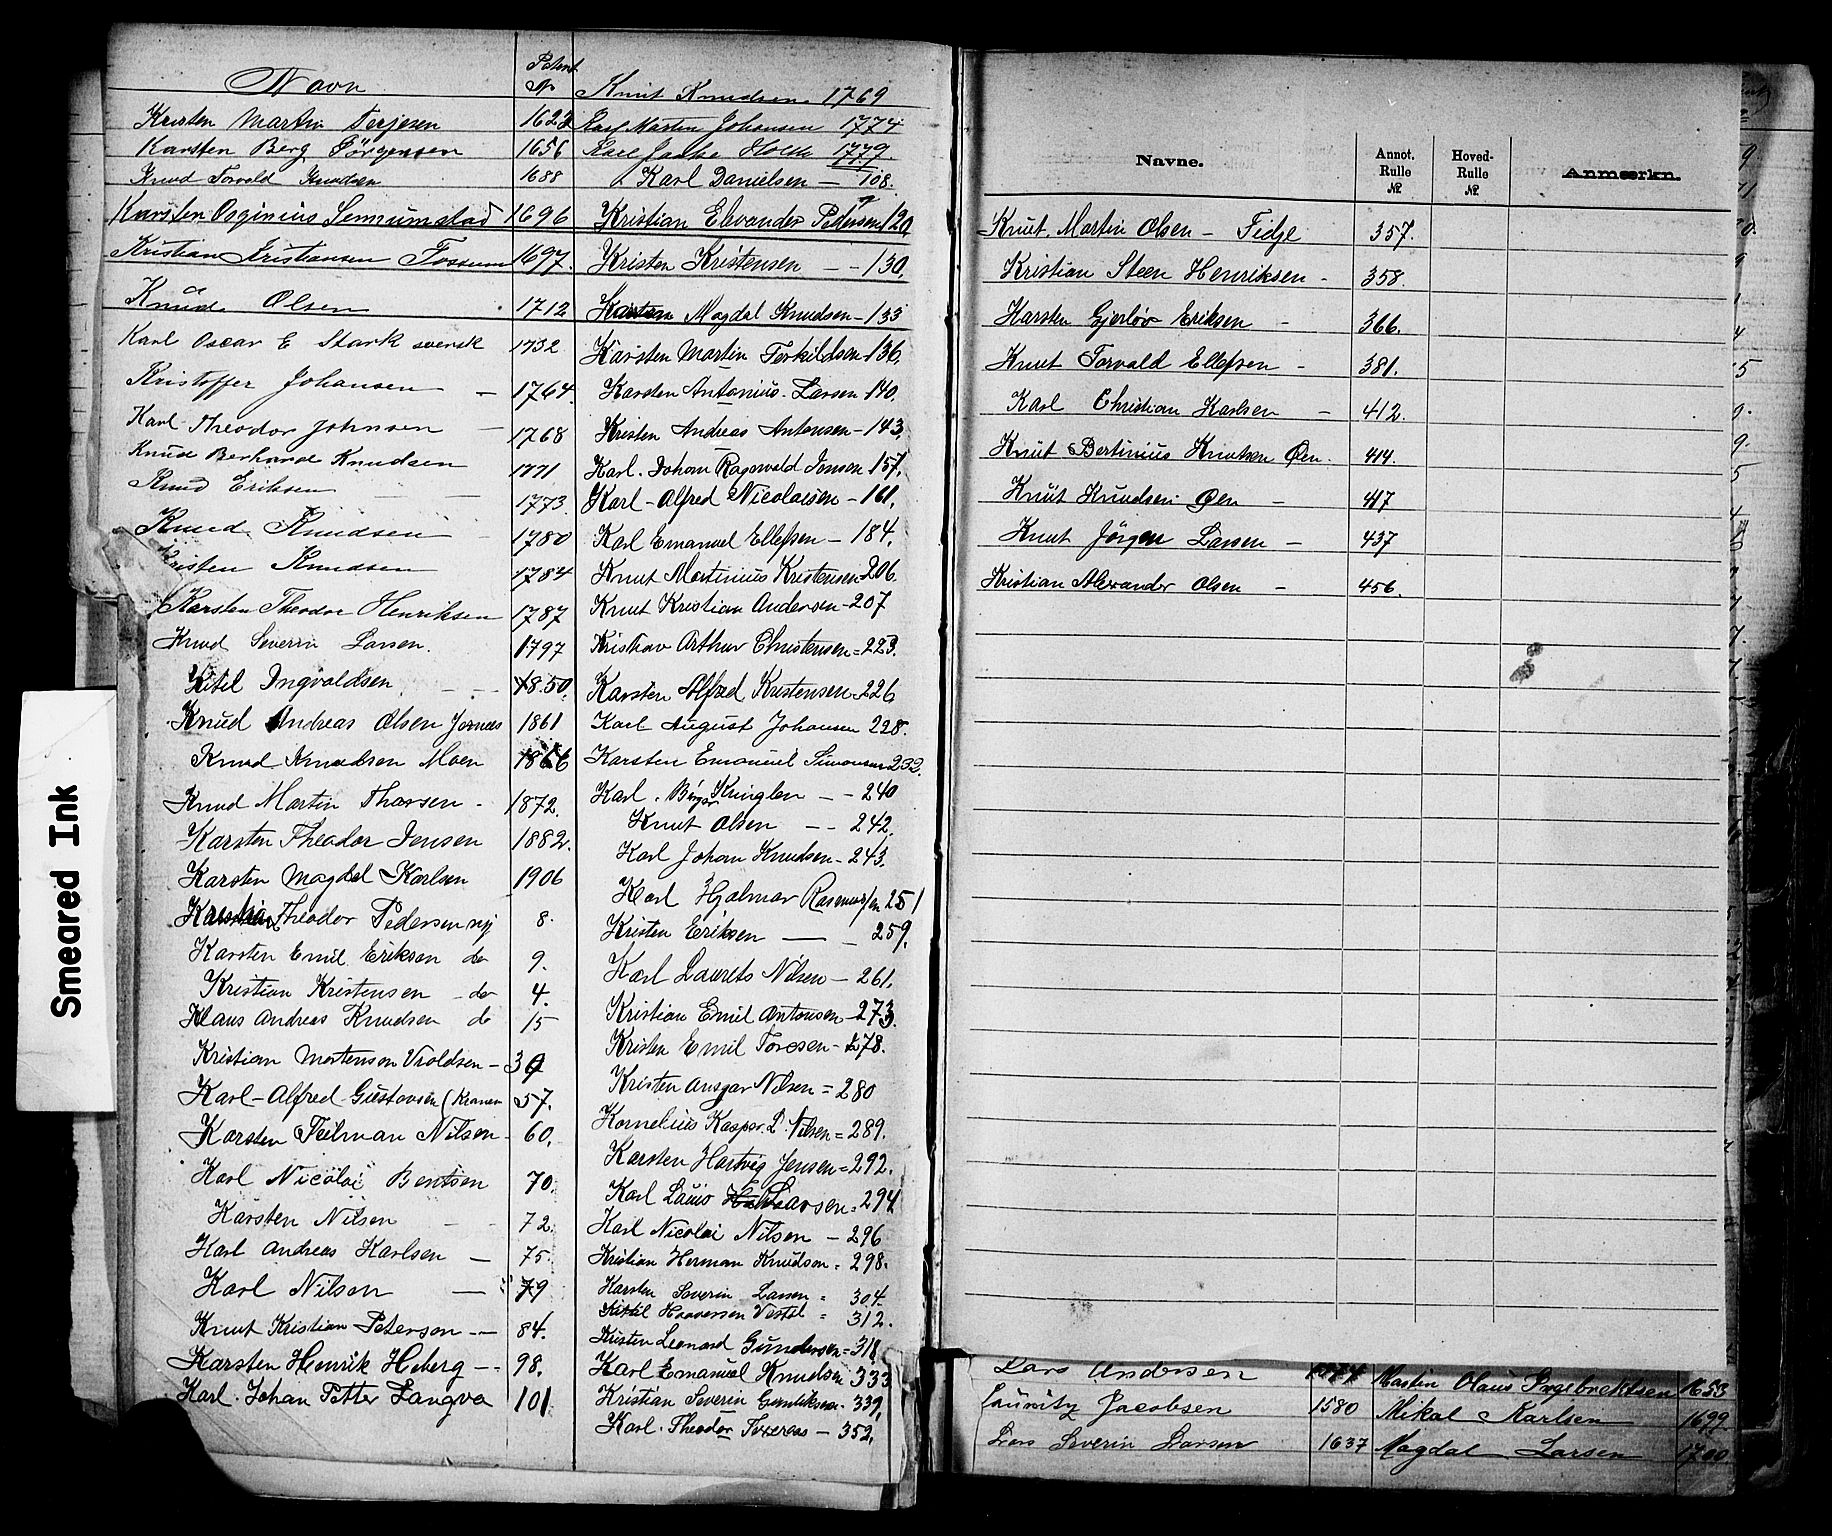 Smeared Ink
Navn Patent No
Kristen Martin Terjesen 1623
Karsten Berg Jörgensen 1656
Knud Torvald Knudsen 1688
Karsten 1696
Kristian Kristiansen Fossum 1697.
Knud Olsen 1712
Karl Oscar E Stark svensk 1732
Kristoffer Johansen — 1764.
Karl Theodor Johnsen — 1768
Knud Berhard Knudsen 1771
Knud Eriksen — 1773.
Knud Knudsen - 1780
Kristen Knudsen 1784
Karsten Theodor Henriksen 1787
Knud Severin Larsen. 1797
Kitil Ingvaldsen 1850.
Knud Andreas Olsen 1861
Knud Knudsen Moen 1866
Knud Martin Thorsen - 1872.
Karsten Theodor Jensen 1882.
Karsten Magdal Karlsen 1906
Theodor Pedersen ny 8.
Karsten Emil Eriksen do 9.
Kristian Kristensen - do 4.
Klaus Andreas Knudsen do 15
Kristian Mortensen Vroldsen - 39
Karl-Alfred Gustavsen 57.
Karsten Teilman Nilsen - 60.
Karl Nicolai Bentsen 70.
Karsten Nilsen - - 72.
Karl Andreas Karlsen — 75.
Karl Nilsen — 79
Knut Kristian Peterson — 84.
Karsten Henrik Heberg -- 98.
Karl Johan Petter Langva 101
Knut Knudsen. 1769
Karl Marten Johansen 1774
Karl Holm 1779.
Karl Danielsen — 108.
Kristian Elevander Pedersen 120
Kristen Kristensen - - 130.
Karsten Magdal Knudsen - 133
Karsten Martin Terkildsen 136.
Karsten Antonius Larsen 140.
Kristen Andreas Antonsen - 143.
Karl Johan Ragnvald Jensen 157.
Karl-Alfred Nicolaisen - 161.
Karl Emanuel Ellefsen - 184.
Knut Martinius Kristensen 206.
Knut Kristian Andersen - 207
Kristian Arthur Christensen = 223.
Karsten Alfred Kristensen 226
Karl August Johansen 228.
Karsten Emanuel Simonsen 232.
Karl Birger Kringlen - - 240
Knut Olsen - - 242.
Karl Johan Knudsen - 243.
Karl Hjalmar Rasmussen 251
Kristen Eriksen — - 259.
Karl Laurets Nilsen - 261.
Kristian Emil Antonsen - 273.
Kristen Emil Toresen - 278.
Kristen Ansgar Nilsen = 280
Kornelius Kasper L. Nilsen = 289.
Karsten Hartvig Jensen = 292.
Karl Larsen = 294
Karl Nicolai Nilsen - 296
Kristian Herman Knudsen = 298.
Karsten Severin Larsen = 304.
Kittil = 312.
Kristen Leonard Gundersen = 318
Karl Emanuel Knudsen 333
Kristian Severin 339.
Karl Theodor - 352.
Navne. Annot. Rulle № Hoved- Rulle № Anmærkn.
Knut Martin Olsen - Fidje 357.
Kristian Steen Henriksen - 358.
Karsten Gjerløv Eriksen - 366.
Knut Torvald Ellefsen - 381.
Karl Christian Karlsen - 412.
Knut Bertinius Knutsen Øen. 414.
Knut Knudsen Øen - 417
Knut Jörgen Larsen - 437
Kristian Alexander Olsen - 456.
Lars Andersen Martin Olaus Ingebrektsen 1653
Lauritz Jacobsen 1580 Mikal Karlsen 1699
Lars Severin Larsen 1637 Magdal Larsen 1700